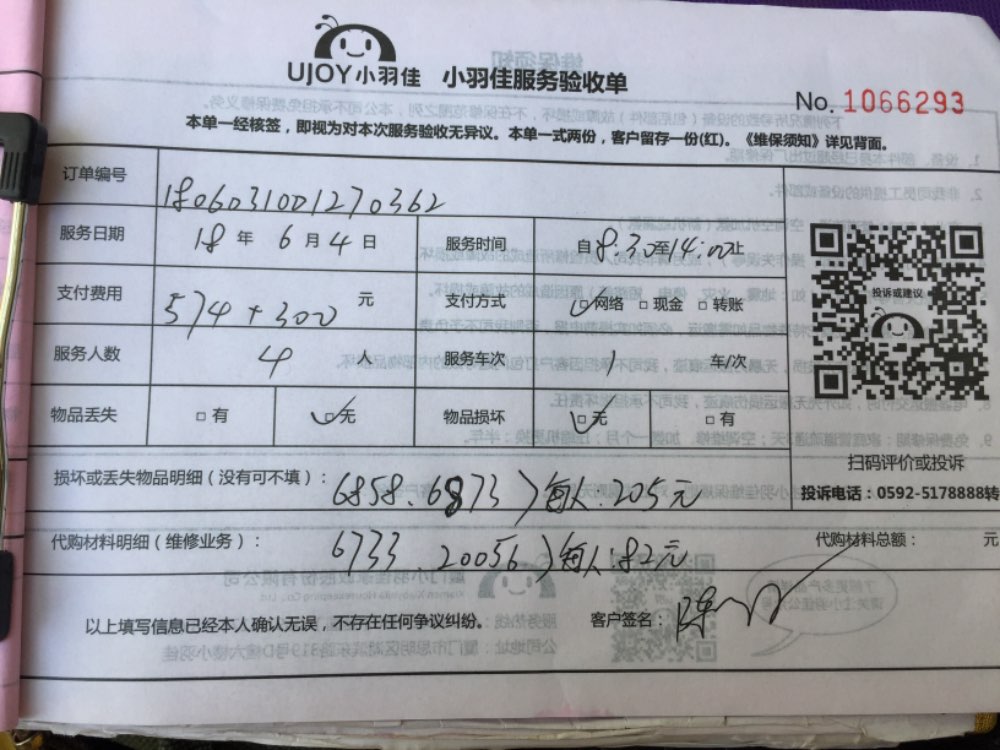 UJOY小羽佳 小羽佳服务验收单
No. 1066293
本单一经核签，即视为对本次服务验收无异议。本单一式两份，客户留存一份(红)。《维保须知》详见背面。
订单编号 1806031001270362
服务日期 18 年 6 月 4 日 服务时间 自 8:30 至 14:00 止
支付费用 574+300 元 支付方式 ☑网络 □现金 □转账
投诉或建议
服务人数 4 人 服务车次 1 车/次
物品丢失 □有 ☑无 物品损坏 ☑无 □有
扫码评价或投诉
损坏或丢失物品明细（没有可不填）: 6858、6873）每人:205元
投诉电话：0592-5178888转
代购材料明细（维修业务）: 6733、20056）每人:82元 代购材料总额： 元
以上填写信息已经本人确认无误，不存在任何争议纠纷。 客户签名：陈